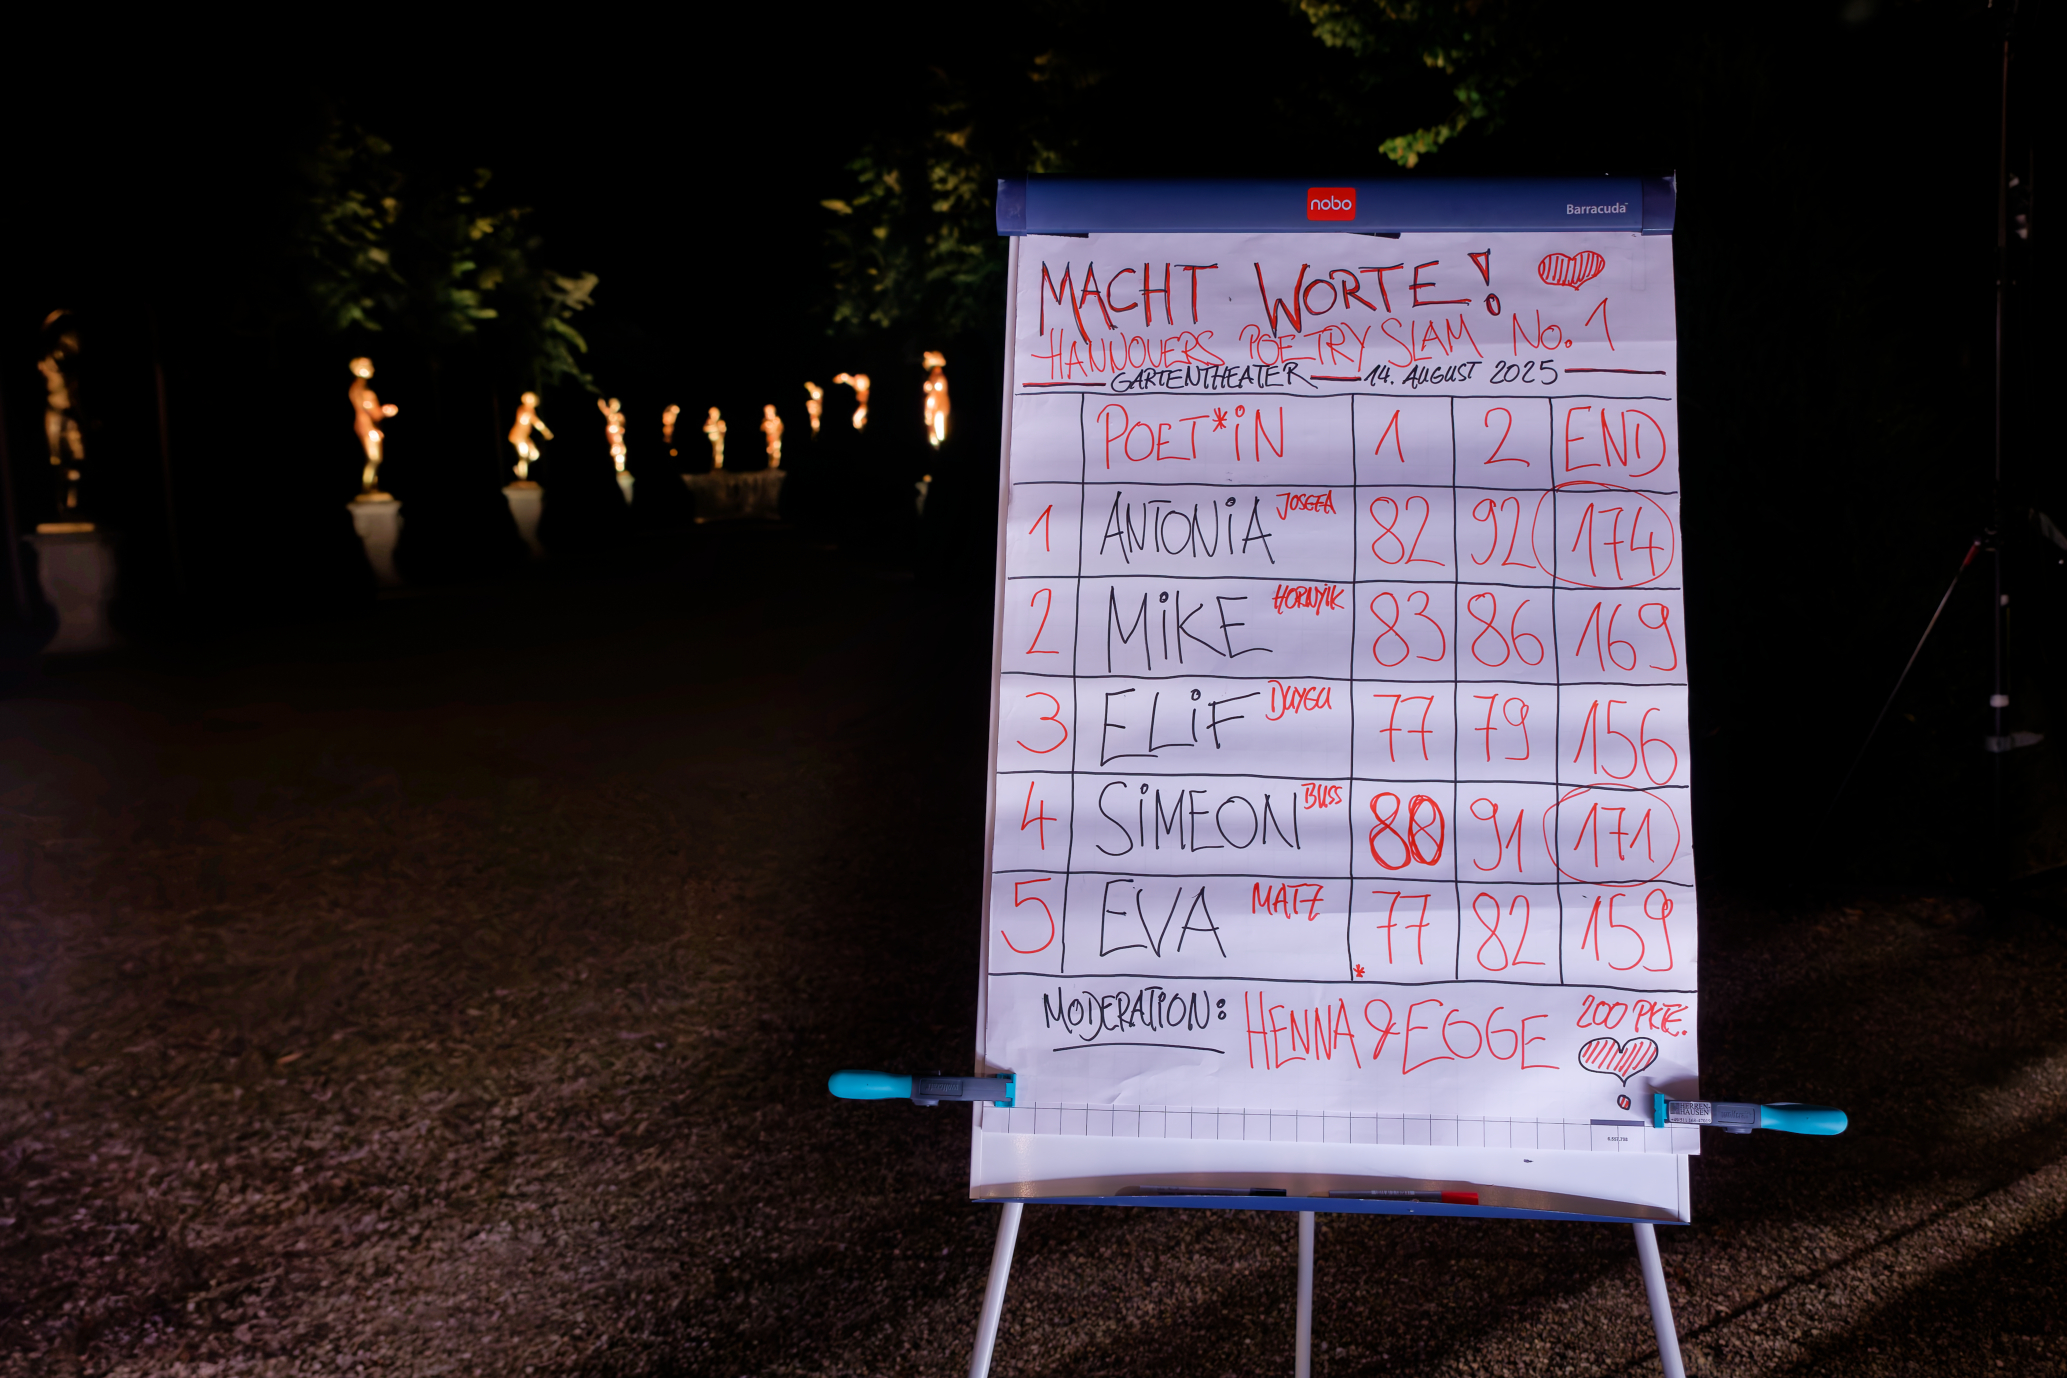 nobo
Barracuda
MACHT WORTE!
HANNOVERS POETRY SLAM No. 1
GARTENTHEATER 14. AUGUST 2025
POET*iN 1 2 END
1 ANTONiA JOSEFA 82 92 174
2 MiKE HORNYiK 83 86 169
3 ELiF DUYGU 77 79 156
4 SiMEON BUSS 80 91 171
5 EVA MATZ 77 82 159
*
MODERATiON: HENNA & EGGE 200 PKTE.
HERREN-
HAUSEN